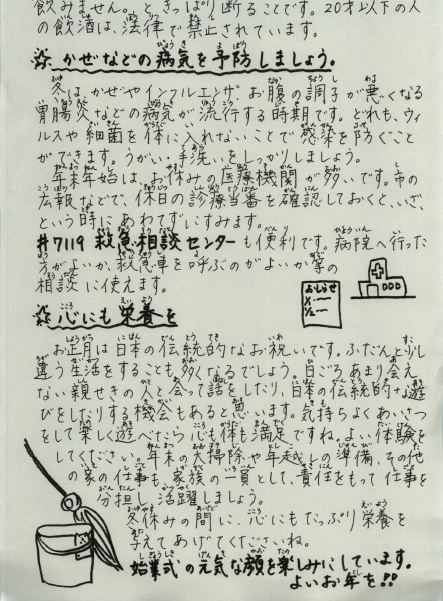 飲みません。」と、きっぱり断ることです。20才以下の人
の飲酒は、法律で禁止されています。
☆かぜなどの病気を予防しましょう。
冬は、かぜやインフルエンザ、お腹の調子が悪くなる
胃腸炎などの病気が流行する時期です。どれも、ウィ
ルスや細菌を体に入れないことで感染を防ぐこと
ができます。うがい・手洗いをしっかりしましょう。
年末年始は、お休みの医療機関が多いです。市の
広報などで、休日の診療当番を確認しておくと、いざ
という時にあわてずにすみます。
#7119 救急相談センターも便利です。病院へ行った
方がよいか、救急車を呼ぶのがよいか等の
相談に使えます。
おしらせ
☆心にも栄養を
お正月は日本の伝統的なお祝いです。ふだんと少し
違う生活をすることも多くなるでしょう。日ごろあまり会え
ない親せきの人と会って話をしたり、日本の伝統的な遊
びをしたりする機会もあると思います。気持ちよくあいさつ
をして楽しく遊べたら心も体も満足ですね。よい体験を
してください。年末の大掃除や年越しの準備、その他
の家の仕事も、家族の一員として、責任をもって仕事を
分担し、活躍しましょう。
冬休みの間に、心にもたっぷり栄養を
与えてあげてくださいね。
始業式の元気な顔を楽しみにしています。
よいお年を!!